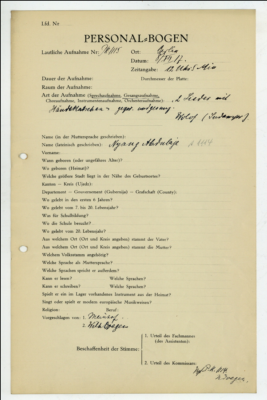 Lfd. Nr
PERSONAL-BOGEN
Lautliche Aufnahme Nr. Ort: Berlin
Datum:
Zeitangabe: 12 Uhr 5 Min
Dauer der Aufnahme: Durchmesser der Platte:
Raum der Aufnahme:
Art der Aufnahme (Sprechaufnahme, Gesangsaufnahme,
Choraufnahme, Instrumentenaufnahme, Orchesteraufnahme): 2 Lieder mit
Händeklatschen
Wolof
Name (in der Muttersprache geschrieben):
Name (lateinisch geschrieben): Nyang Abdulaje
Vorname:
Wann geboren (oder ungefähres Alter)?
Wo geboren (Heimat)?
Welche größere Stadt liegt in der Nähe des Geburtsortes?
Kanton – Kreis (Ujedz):
Department – Gouvernement (Gubernija) – Grafschaft (County):
Wo gelebt in den ersten 6 Jahren?
Wo gelebt vom 7 bis 20. Lebensjahr?
Was für Schulbildung?
Wo die Schule besucht?
Wo gelebt vom 20. Lebensjahr?
Aus welchem Ort (Ort und Kreis angeben) stammt der Vater?
Aus welchem Ort (Ort und Kreis angeben) stammt die Mutter?
Welchem Volksstamm angehörig?
Welche Sprache als Muttersprache?
Welche Sprachen spricht er außerdem?
Kann er lesen? Welche Sprachen?
Kann er schreiben? Welche Sprachen?
Spielt er ein im Lager vorhandenes Instrument aus der Heimat?
Singt oder spielt er modern europäische Musikweisen?
Religion: Beruf:
Vorgeschlagen von: 1. Meinhof
2. Wilh. Doegen
Beschaffenheit der Stimme:
1. Urteil des Fachmannes:
(des Assistenten):
2. Urteil des Kommissars: